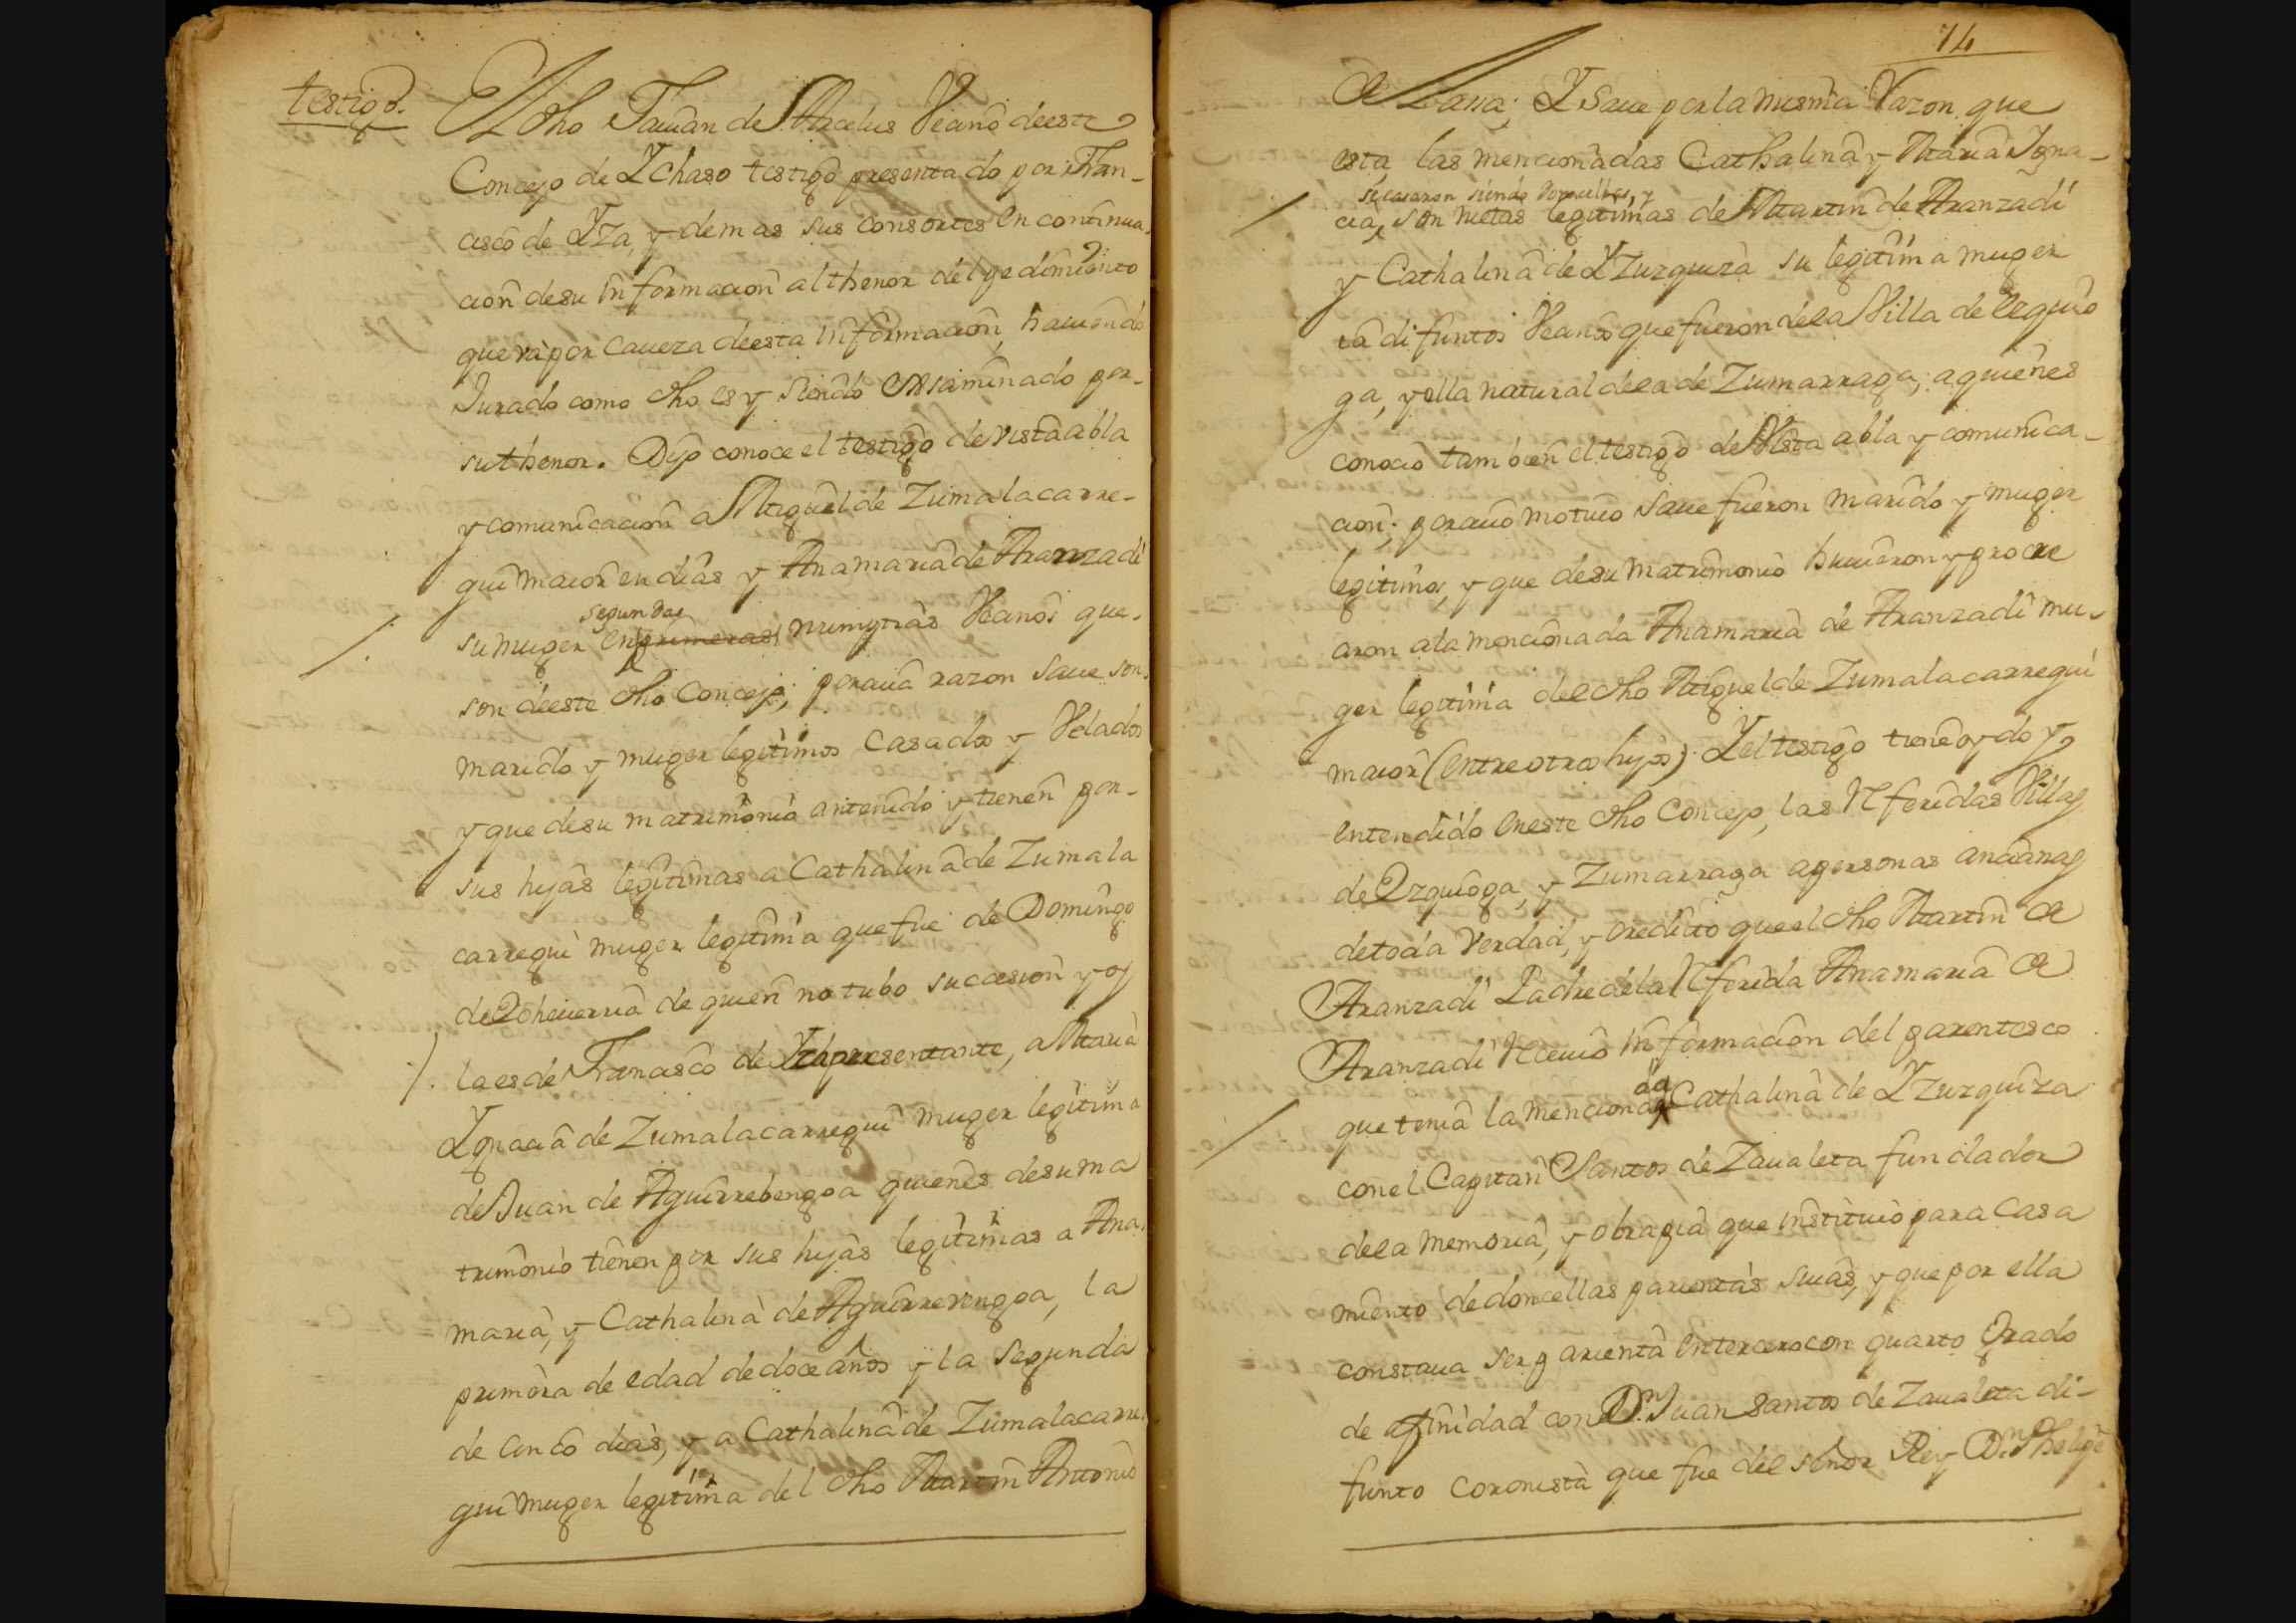 testigo.
El dho Fauian de Arcelus Veciano deeste
Concejo de Ychaso testigo presentado por Fran-
cisco de Yza, y demas sus consortes en continua-
cion desu informacion althenor del pedimiento
que và por caueza deesta informacion, hauiendo
Jurado como dho es y siendo exsaminado por-
suthenor. Dijo conoce el testigo de vista abla
y comunicacion a Miguel de Zumalacarre-
gui maior en dias y Anamaria de Aranzadi
segundas
su muger en primeras numptias Vecinos que-
son deeste dho Concejo; por cuia razon saue son
marido y muger legitimos Casados y Velados
y que desu matrimonio an tenido y tienen por-
sus hijas legitimas a Cathalina de Zumala
carregui muger legitima que fue de Domingo
de Echeuerria de quien no tubo succesion y oy
la es de Francisco de Yza presentante, a Maria
Ygnacia de Zumalacarregui muger legitima
de Juan de Aguirrebengoa quienes desu ma
trimonio tienen por sus hijas legitimas a Ana
maria, y Cathalina de Aguirrevengoa, la
primera de edad de doce años y la segunda
de cinco dias, y a Cathalina de Zumalacarre
gui muger legitima del dho Martin Antonio
74
de Lassa; Y Saue por la misma Razon que
esta, las mencionadas Cathalina y Maria Igna-
se casaron siendo Donzellas, y
cia, son nietas legitimas de Martin de Aranzadi
y Cathalina de Yzurquiza su legitima muger
ia difuntos Vecinos que fueron dela Villa de Ezquio
ga, y ella natural dela de Zumarraga, a quienes
conocio tambien el testigo de Vista abla y comunica-
cion; por cuio motiuo saue fueron marido y muger
legitimos, y que desu matrimonio huuieron y procre
aron ala mencionada Anamaria de Aranzadi mu-
ger legitima del dho Miguel de Zumalacarregui
maior (entre otros hijos). Y el testigo tiene oydo y
entendido en este dho Concejo, las Referidas Villas
de Ezquioga, y Zumarraga a personas ancianas
de toda Verdad, y credito que el dho Martin de
Aranzadi Padre dela Referida Anamaria de
Aranzadi Reciuio informacion del parentesco
da
que tenia la mencionada Cathalina de Yzurquiza
con el Capitan Santos de Zaualeta fundador
dela memoria, y obrapia que instituio para Casa
miento de doncellas parientas suias, y que por ella
constaua ser parienta en tercero con quarto Grado
de afinidad con Dn. Juan Santos de Zaualeta di-
funto coronista que fue del señor Rey Dn. Phelipe